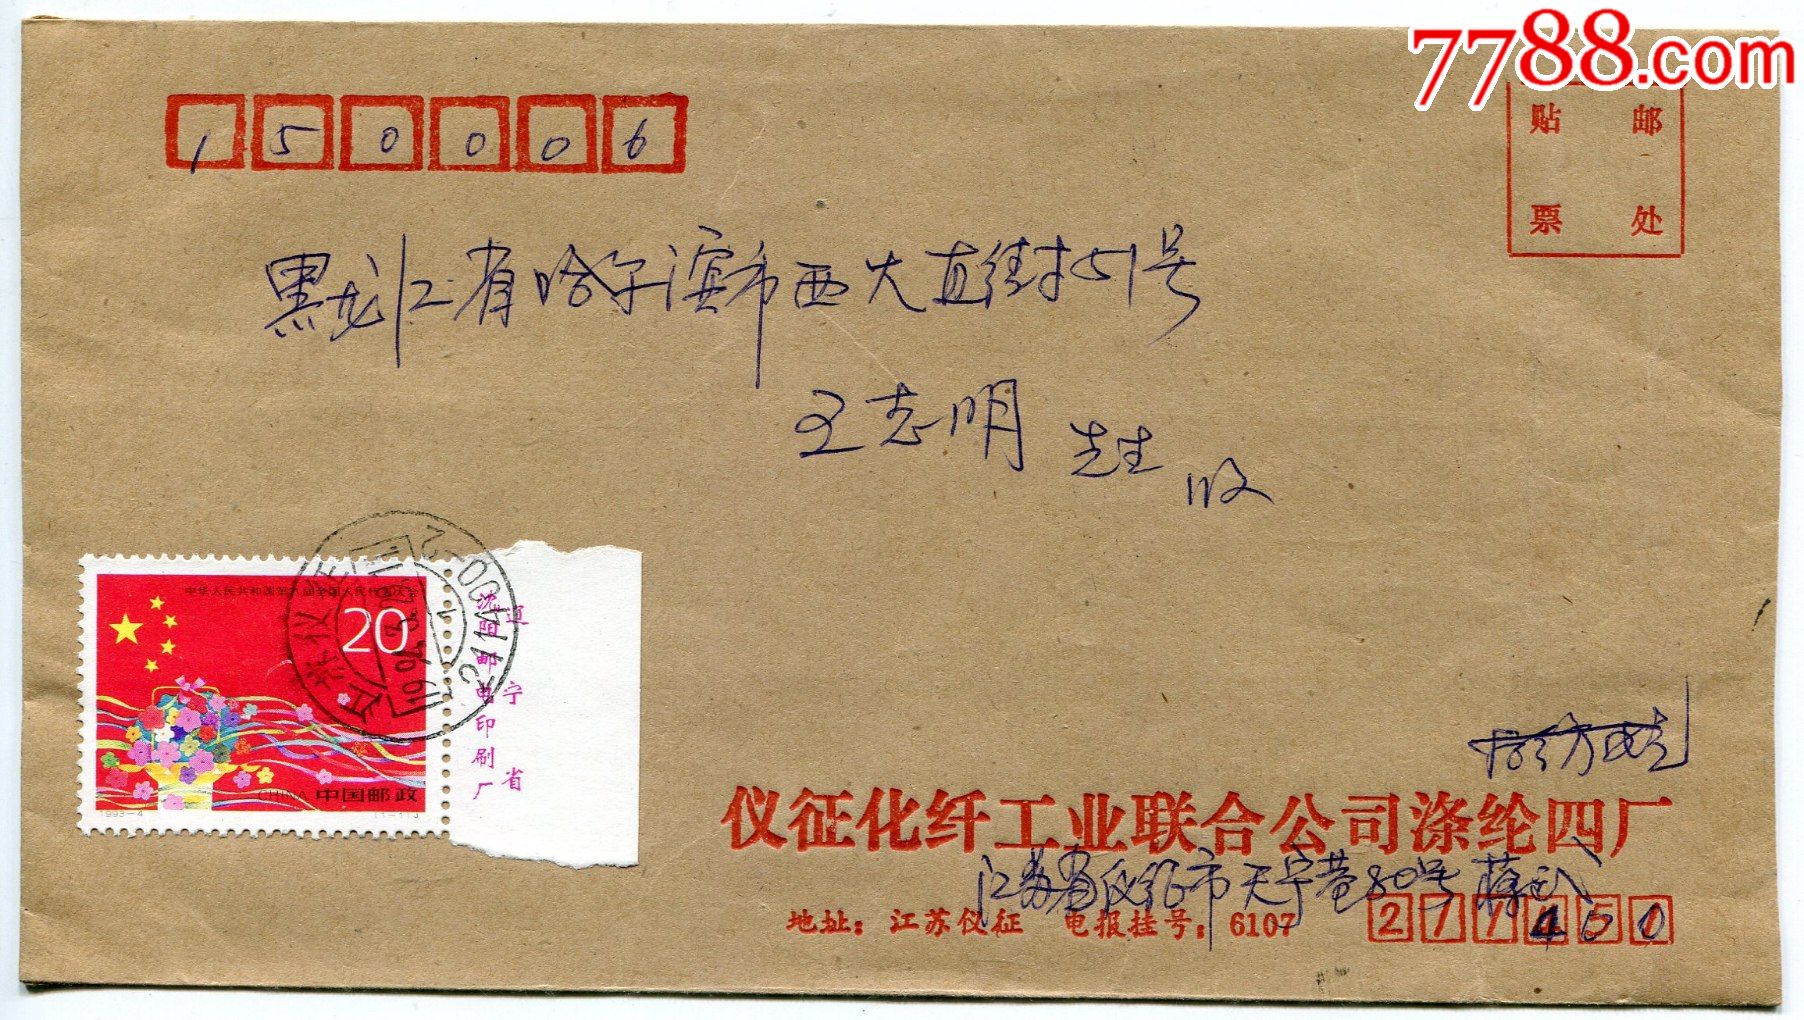 7788.com
贴 邮
票 处
150006
黑龙江省哈尔滨市西大直街51号
王志明 先生 收
中华人民共和国第八届全国人民代表大会
20
CHINA 中国邮政
1993-4 (1-1)J
辽宁省
沈阳邮电印刷厂
江苏仪征
仪征化纤工业联合公司涤纶四厂
江苏省仪征市天宁巷80号 蒋
地址：江苏仪征 电报挂号：6107 211450